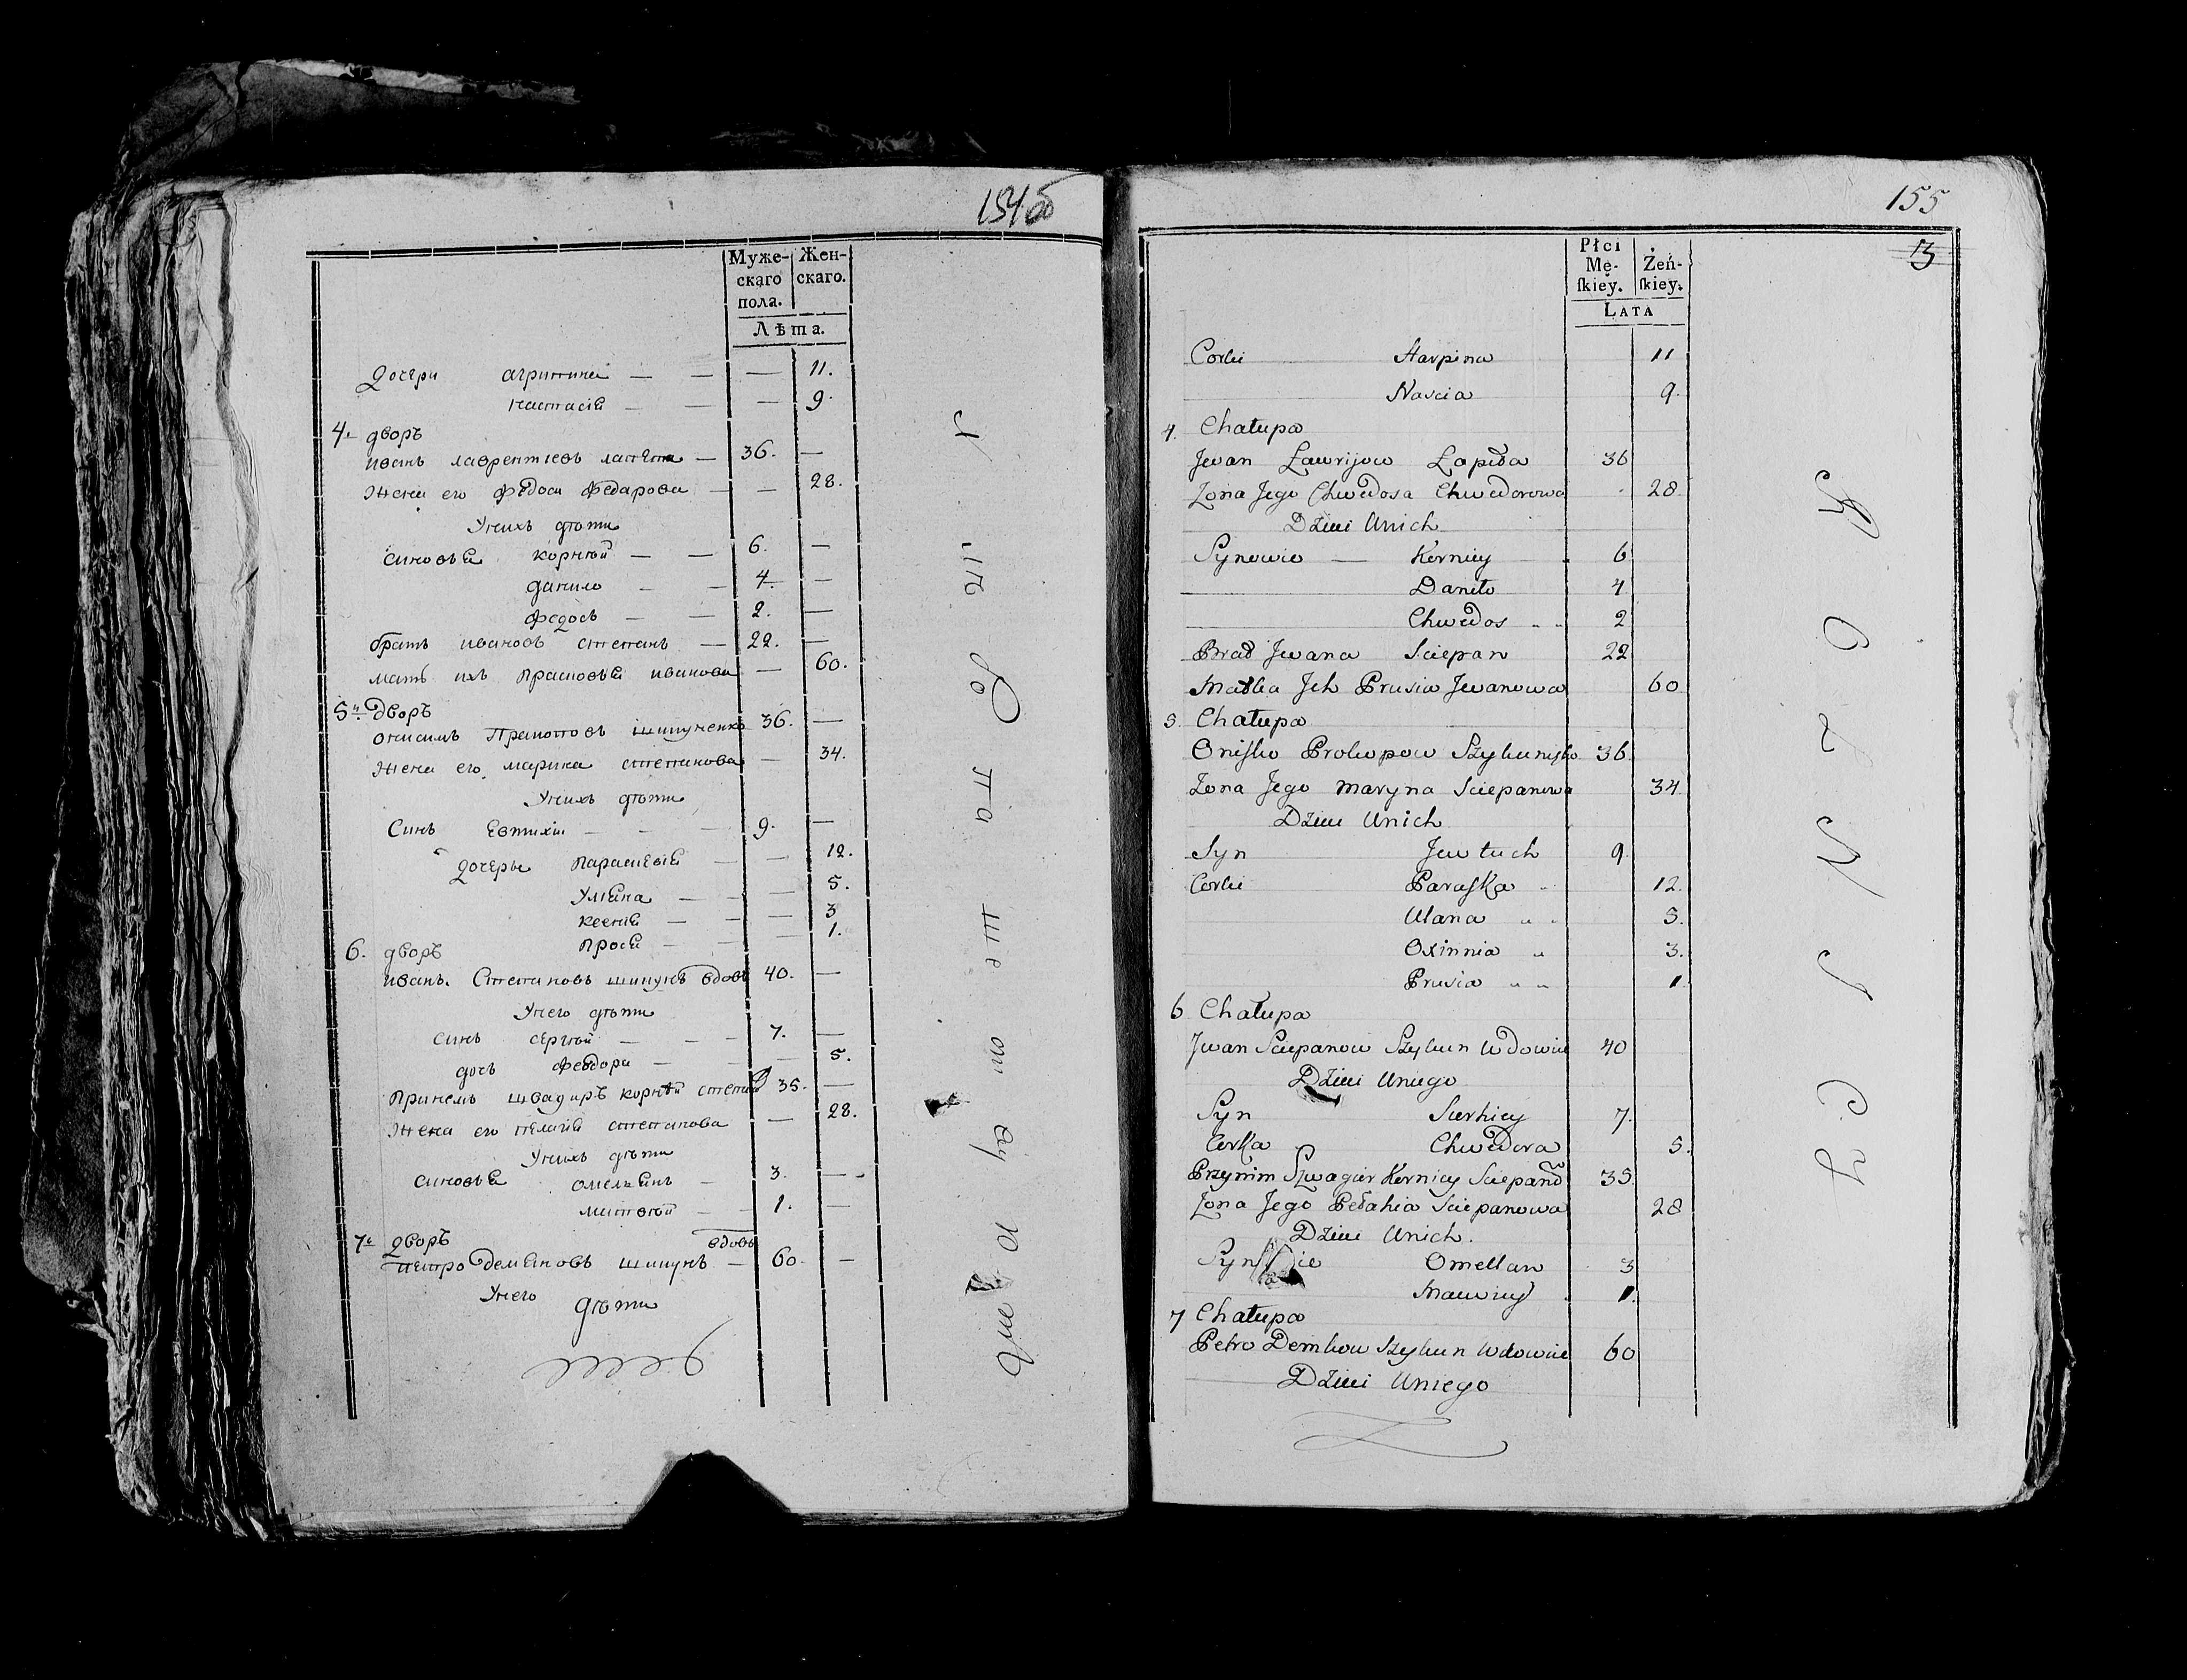 154об
Муже-
скаго
пола.
Жен-
скаго.
Лѣта.
Дочери агрипина — — — 11.
настасiя — — — 9.
4. дворъ
иванъ лаврентиевъ лапета — 36. —
Жена его Федося Федарова — — 28.
Унихъ дѣти
синовья корнѣй — — 6. —
данило — — 4. —
Федосъ — — 2. —
братъ ивановъ степанъ — 22. —
мать ихъ прасковья иванова — 60.
5й дворъ
онисимъ Пракоповъ шипуненко 36. —
Жена его марина степанова — 34.
Унихъ дѣти
Синъ Евтихiи — — — 9. —
дочеры Параскевiя — — 12.
Уляна — — — 5.
Ксенiя — — — 3
Прося — — 1.
6. дворъ
иванъ. Степановъ шипунъ вдовъ 40. —
Унего дѣти
синъ сергѣй — — — 7. —
дочь Феодора — — — 5.
Принемъ швагиръ корнѣй степан 35. —
Жена его пелагiя степанова — 28.
Унихъ дѣти
синовья омельянъ — 3. —
матвѣй — — 1. —
7й дворъ
вдовъ
петро демьяновъ шипунъ — 60. —
Унего
дѣти
155
3
Płci
Mę-
ſkiey.
Żeń-
ſkiey.
LATA
Corki Harpina 11
Nascia 9.
4. Chałupa
Jwan Ławrijow Łapeta 36
Zona Jego Chwedosa Chwedorowa 28
Dzieci Unich
Synowie — Korniey 6
Daniło 4
Chwedos 2
Brat Jwana Sciepan 22
Matka Jch Prusia Jwanowa 60
5. Chałupa
Oniſko Prokopow Szykunisko 36
Zona Jego Maryna Sciepanowa 34
Dzieci Unich
Syn Jewtuch 9.
Corki Paraſka 12.
Ulana 5.
Oxinnia 3.
Prusia 1
6 Chałupa
Jwan Sciepanow Szykun Wdowiec 40
Dzieci Uniego
Syn Sierhiey 7.
Corka Chwedora 5.
Przyiim Szwagier Korniey Sciepanow 35
Zona Jego Pełahia Sciepanowa 28
Dzieci Unich.
Synowie Omellan 3
Mawiey 1.
7 Chałupa
Petro Demkow Szykun Wdowiec 60
Dzieci Uniego